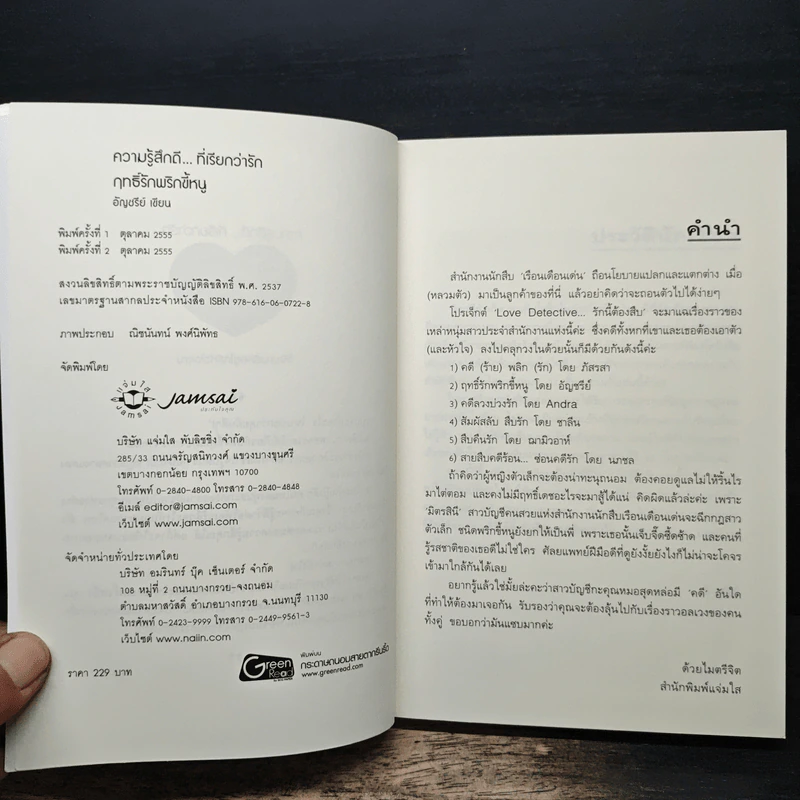 ความรู้สึกดี... ที่เรียกว่ารัก
ฤทธิ์รักพริกขี้หนู
อัญชรีย์ เขียน
พิมพ์ครั้งที่ 1 ตุลาคม 2555
พิมพ์ครั้งที่ 2 ตุลาคม 2555
สงวนลิขสิทธิ์ตามพระราชบัญญัติลิขสิทธิ์ พ.ศ. 2537
เลขมาตรฐานสากลประจำหนังสือ ISBN 978-616-06-0722-8
ภาพประกอบ ณิชนันทน์ พงศ์นิพัทธ
จัดพิมพ์โดย
แจ่มใส
Jamsai
Jamsai
บริษัท แจ่มใส พับลิชชิ่ง จำกัด
285/33 ถนนจรัญสนิทวงศ์ แขวงบางขุนศรี
เขตบางกอกน้อย กรุงเทพฯ 10700
โทรศัพท์ 0-2840-4800 โทรสาร 0-2840-4848
อีเมล์ editor@jamsai.com
เว็บไซต์ www.jamsai.com
จัดจำหน่ายทั่วประเทศโดย
บริษัท อมรินทร์ บุ๊ค เซ็นเตอร์ จำกัด
108 หมู่ที่ 2 ถนนบางกรวย-จงถนอม
ตำบลมหาสวัสดิ์ อำเภอบางกรวย จ.นนทบุรี 11130
โทรศัพท์ 0-2423-9999 โทรสาร 0-2449-9561-3
เว็บไซต์ www.naiin.com
ราคา 229 บาท
Green Read
พิมพ์บน
กระดาษถนอมสายตากรีนรี้ด
www.greenread.com
คำนำ
สำนักงานนักสืบ 'เรือนเดือนเด่น' ถือนโยบายแปลกและแตกต่าง เมื่อ
(หลวมตัว) มาเป็นลูกค้าของที่นี่ แล้วอย่าคิดว่าจะถอนตัวไปได้ง่ายๆ
โปรเจ็กต์ 'Love Detective... รักนี้ต้องสืบ' จะมาแฉเรื่องราวของ
เหล่าหนุ่มสาวประจำสำนักงานแห่งนี้ค่ะ ซึ่งคดีทั้งหกที่เขาและเธอต้องเอาตัว
(และหัวใจ) ลงไปคลุกวงในด้วยนั้นก็มีด้วยกันดังนี้ค่ะ
1) คดี (ร้าย) พลิก (รัก) โดย ภัสรสา
2) ฤทธิ์รักพริกขี้หนู โดย อัญชรีย์
3) คดีลวงบ่วงรัก โดย Andra
4) สัมผัสลับ สืบรัก โดย ชาลีน
5) สืบคืนรัก โดย ฌามิวอาห์
6) สายสืบคดีร้อน... ซ่อนคดีรัก โดย นภชล
ถ้าคิดว่าผู้หญิงตัวเล็กจะต้องน่าทะนุถนอม ต้องคอยดูแลไม่ให้ริ้นไร
มาไต่ตอม และคงไม่มีฤทธิ์เดชอะไรจะมาสู้ได้แน่ คิดผิดแล้วล่ะค่ะ เพราะ
'มิตรสินี' สาวบัญชีคนสวยแห่งสำนักงานนักสืบเรือนเดือนเด่นจะฉีกกฎสาว
ตัวเล็ก ชนิดพริกขี้หนูยังยกให้เป็นพี่ เพราะเธอนั้นเจ็บจี๊ดซี้ดซ้าด และคนที่
รู้รสชาติของเธอดีไม่ใช่ใคร ศัลยแพทย์ฝีมือดีที่ดูยังงั้ยยังไงก็ไม่น่าจะโคจร
เข้ามาใกล้กันได้เลย
อยากรู้แล้วใช่มั้ยล่ะคะว่าสาวบัญชีกะคุณหมอสุดหล่อมี 'คดี' อันใด
ที่ทำให้ต้องมาเจอกัน รับรองว่าคุณจะต้องลุ้นไปกับเรื่องราวอลเวงของคน
ทั้งคู่ ขอบอกว่ามันแซบมากค่ะ
ด้วยไมตรีจิต
สำนักพิมพ์แจ่มใส